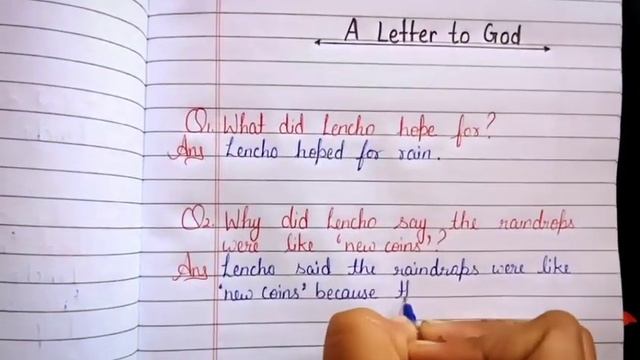 A Letter to God
Q1. What did Lencho hope for?
Ans Lencho hoped for rain.
Q2. Why did Lencho say the raindrops
were like 'new coins'?
Ans Lencho said the raindrops were like
'new coins' because